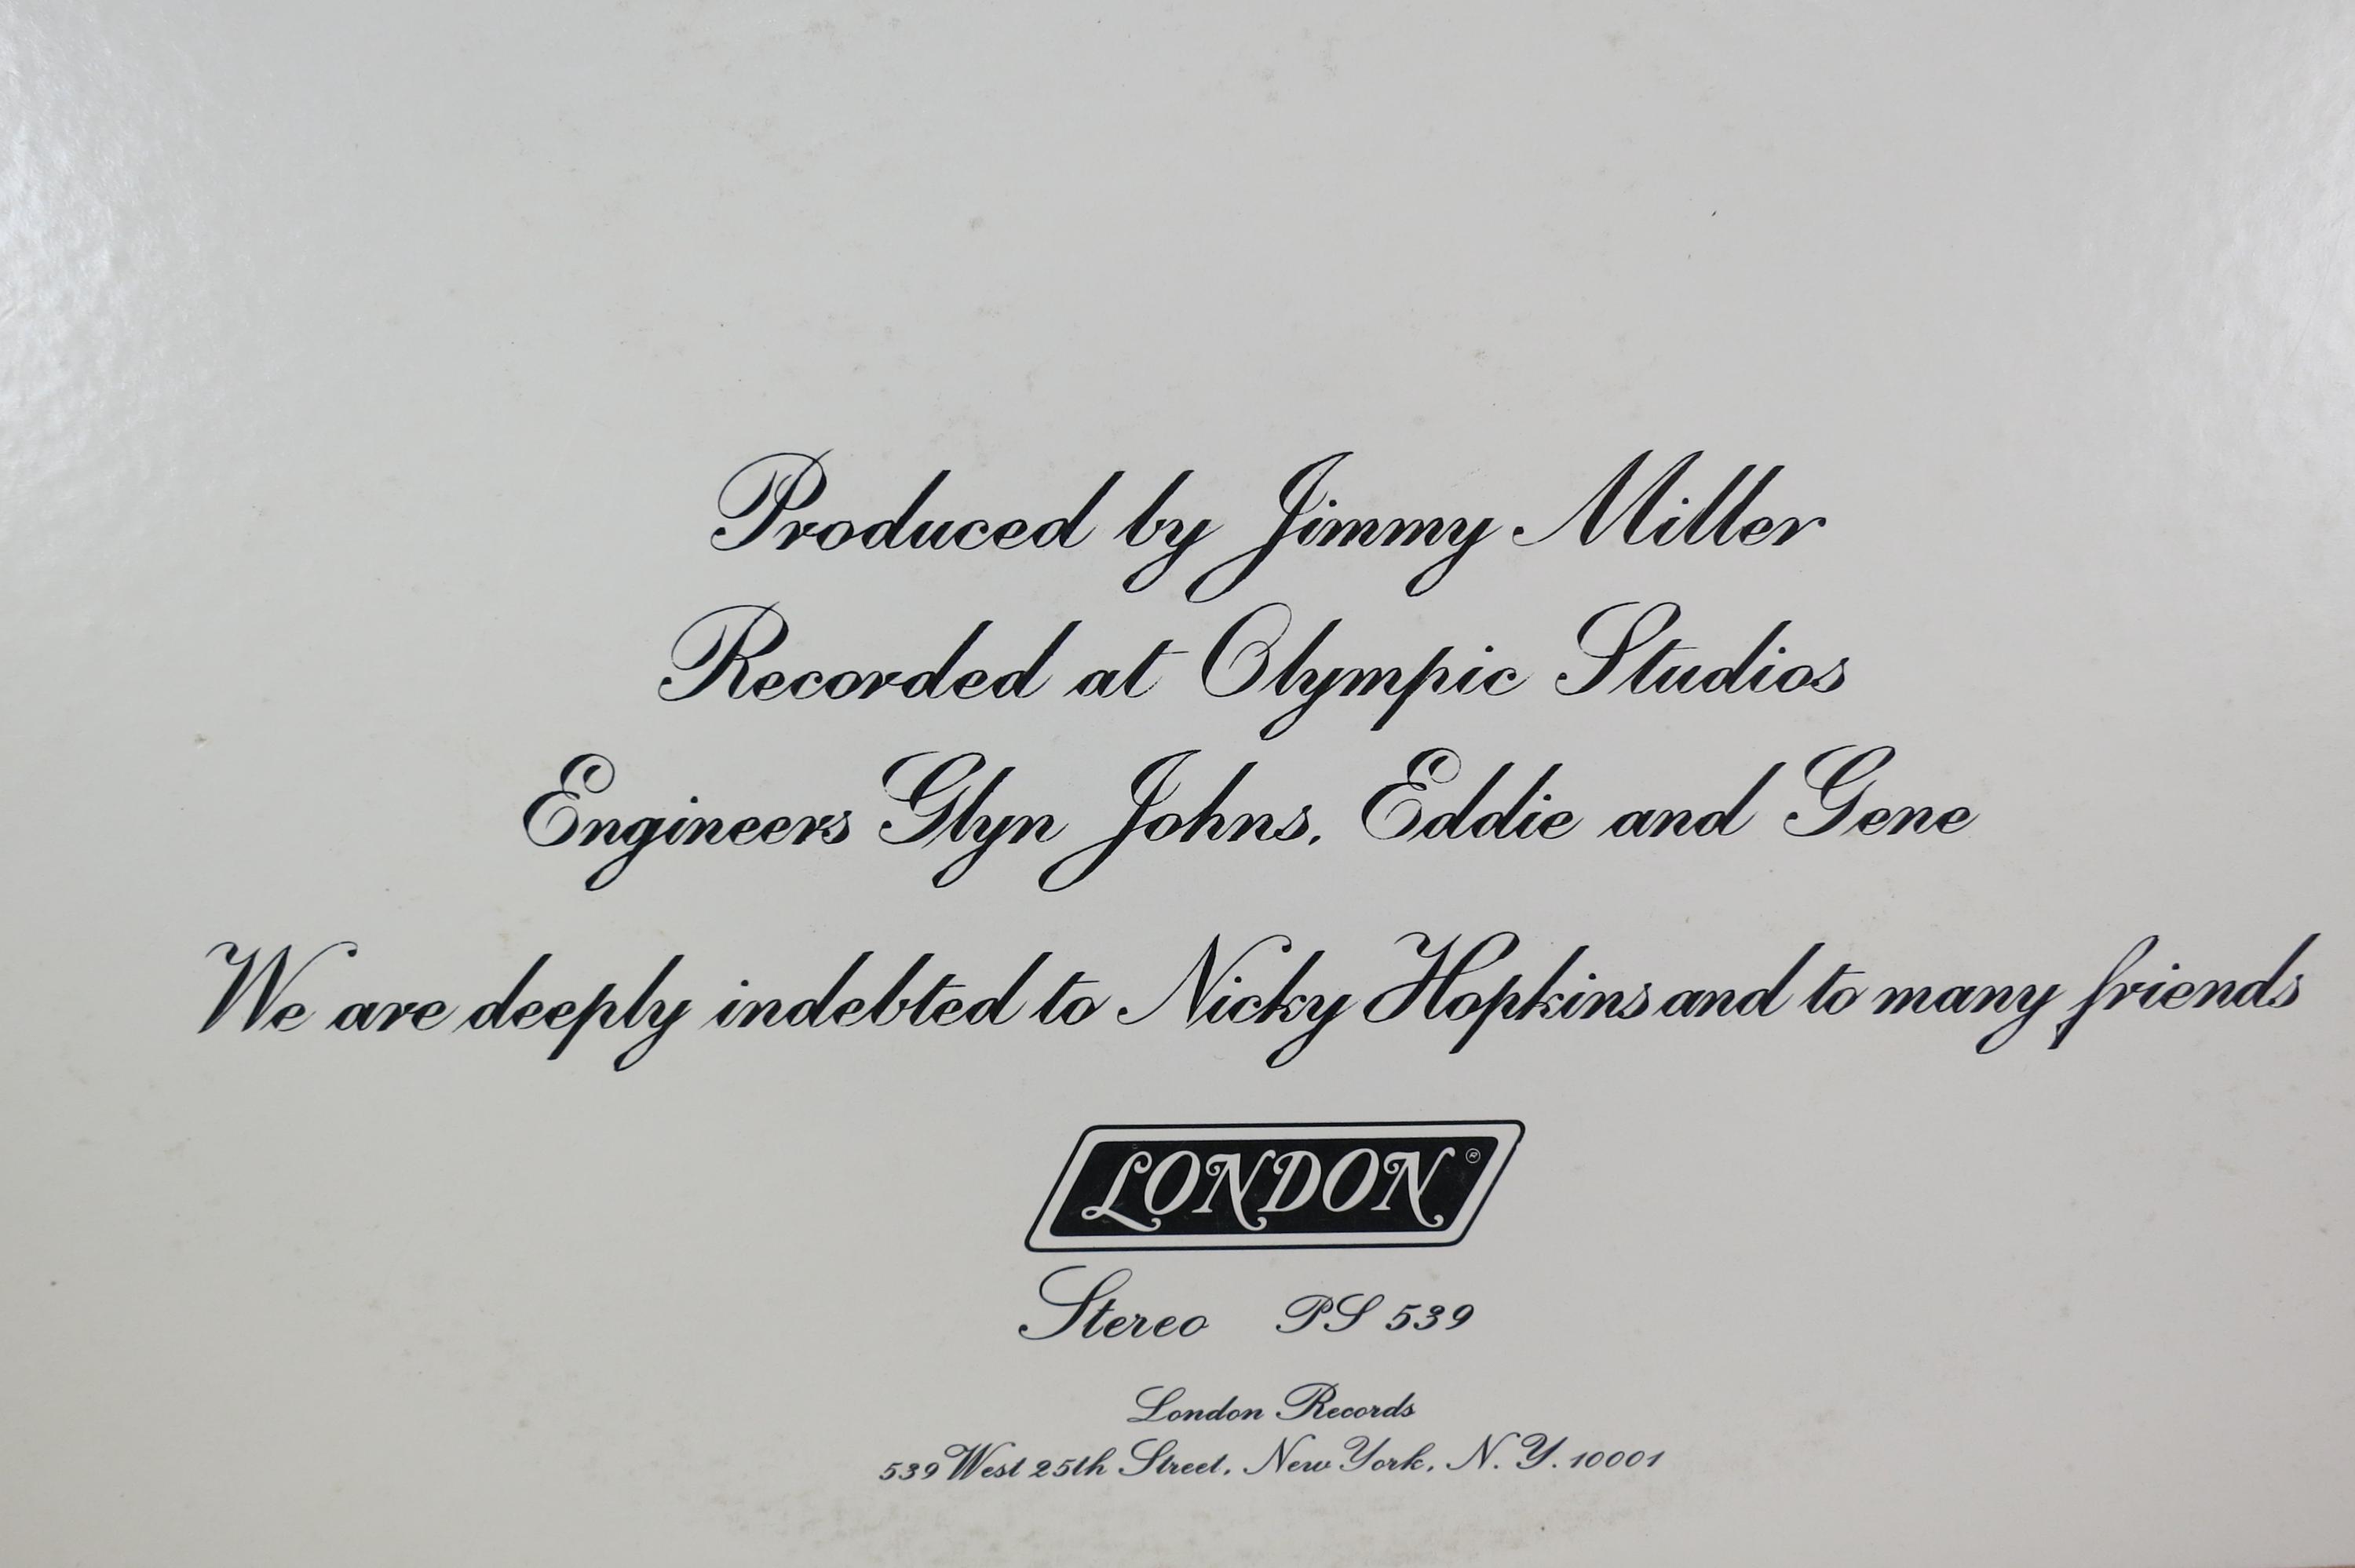 Produced by Jimmy Miller
Recorded at Olympic Studios
Engineers Glyn Johns, Eddie and Gene
We are deeply indebted to Nicky Hopkins and to many friends
LONDON®
Stereo PS 539
London Records
539 West 25th Street, New York, N. Y. 10001